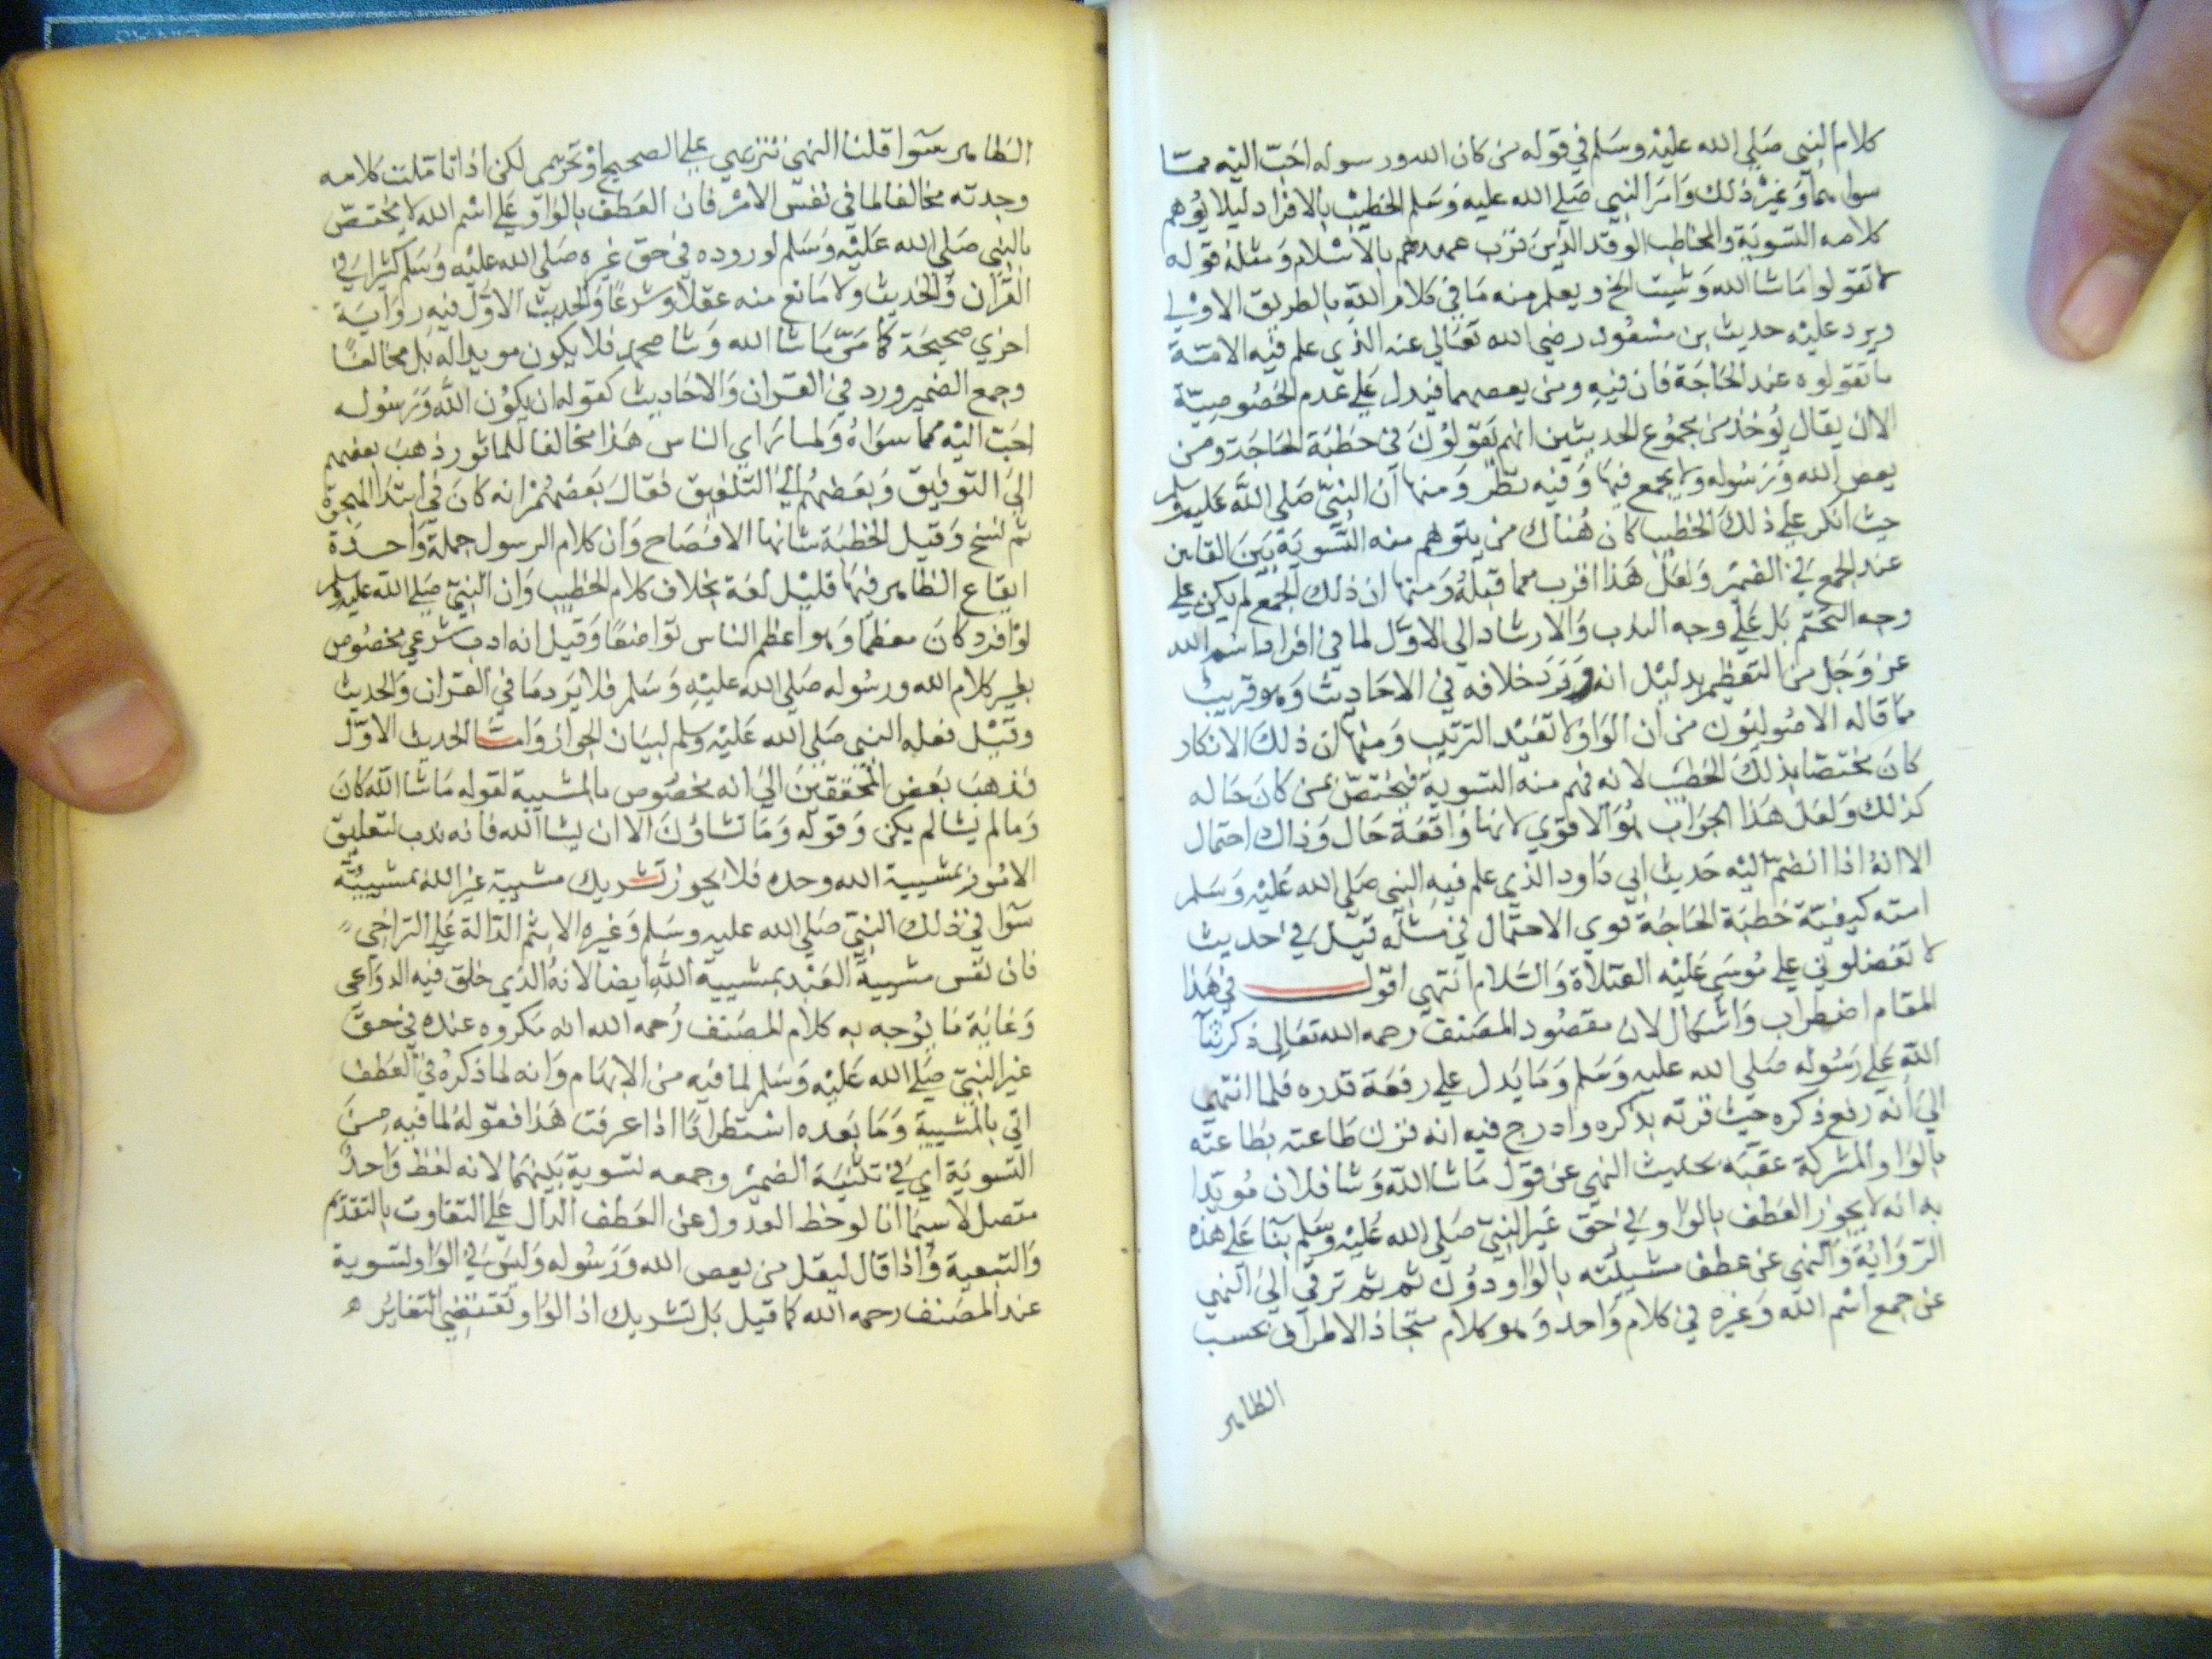 كلام النبي صلي الله عليه وسلم في قوله من كان الله ورسوله احب اليه مما
سواهما وغير ذلك وامر النبي صلي الله عليه وسلم الخطيب بالافراد ليلا يوهم
كلامه التسوية والمخاطب الوفد الذين قرب عهدهم بالاسلام ومثله قوله
لا تقولوا ما شا الله وشيت الخ ويعلم منه ما في كلام الله بالطريق الاولي
ويرد عليه حديث بن مسعود رضي الله تعالي عنه الذي علم فيه الامة
ما تقولوه عند الحاجة فان فيه ومن يعصهما فيدل علي عدم الخصوصية
الا ان يقال يوخذ من مجموع الحديثين انهم يقولون في خطبة الحاجة ومن
يعص الله ورسوله ولا يجمع فيها وفيه نظر ومنها ان النبي صلي الله عليه وسلم
حيث انكر علي ذلك الخطيب كان هناك من يتوهم منه التسوية بين المقامين
عند الجمع في الضمير ولعل هذا اقرب مما قبله ومنها ان ذلك الجمع لم يكن علي
وجه التحتم بل علي وجه الندب والارشاد الي الاول لما في افراد اسم الله
عز وجل من التعظيم بدليل انه ورد خلافه في الاحاديث وهو قريب
مما قاله الاصوليون من ان الواو لا تفيد الترتيب ومنها ان ذلك الانكار
كان مختصا بذلك الخطيب لانه فهم منه التسوية فيختص بمن كان حاله
كذلك ولعل هذا الجواب هو الاقوي لانها واقعة حال وذاك احتمال
الا انه اذا انضم اليه حديث ابي داود الذي علم فيه النبي صلي الله عليه وسلم
امته كيفية خطبة الحاجة قوي الاحتمال في مثله قيل في حديث
لا تفضلوني علي موسي عليه الصلاة والسلام انتهي اقول في هذا
المقام اضطراب واشكال لان مقصود المصنف رحمه الله تعالي ذكر ثنا
الله علي رسوله صلي الله عليه وسلم وما يدل علي رفعة قدره فلما انتهي
الي انه رفع ذكره حيث قرنه بذكره وادرج فيه انه قرن طاعته بطاعته
بالواو المشركة عقبه بحديث النهي عن قول ما شا الله وشا فلان مويدا
به انه لا يجوز العطف بالواو في حق غير النبي صلي الله عليه وسلم بنا علي هذه
الرواية والنهي عن عطف مشيئته بالواو دون ثم ثم ترقي الي النهي
عن جمع اسم الله وغيره في كلام واحد وهو كلام متجاذ الاطراف بحسب
الظاهر
الظاهر سوا قلنا النهي تنزيهي علي الصحيح او تحريمي لكن اذا تاملت كلامه
وجدته مخالفا لما في نفس الامر فان العطف بالواو علي اسم الله لا يختص
بالنبي صلي الله عليه وسلم لوروده في حق غيره صلي الله عليه وسلم كثيرا في
القران والحديث ولا مانع منه عقلا وشرعا والحديث الاول فيه رواية
اخري صحيحة كما مر ما شا الله وشا محمد فلا يكون مويدا له بل مخالفا
وجمع الضمير ورد في القران والاحاديث كقوله ان يكون الله ورسوله
احب اليه مما سواه ولما راي الناس هذا مخالفا للماثور ذهب بعضهم
الي التوفيق وبعضهم الي التلفيق فقال بعضهم انه كان في ابتدا الهجرة
ثم نسخ وقيل الخطبة شانها الافصاح وان كلام الرسول جملة واحدة
ايقاع الظاهر فيها قليل لغة بخلاف كلام الخطيب وان النبي صلي الله عليه وسلم
لو افرد كان معظما وهو اعظم الناس تواضعا وقيل انه ادب شرعي مخصوص
بغير كلام الله ورسوله صلي الله عليه وسلم فلا يرد ما في القران والحديث
وقيل فعله النبي صلي الله عليه وسلم لبيان الجواز واما الحديث الاول
فذهب بعض المحققين الي انه مخصوص بالمشيية لقوله ما شا الله كان
وما لم يشا لم يكن وقوله وما تشاون الا ان يشا الله فانه ندب لتعليق
الامور بمشيية الله وحده فلا يجوز تشريك مشيية غير الله بمشييته
سوا في ذلك النبي صلي الله عليه وسلم وغيره الا بثم الدالة علي التراخي
فان نفس مشيية العبد بمشيية الله ايضا لانه الذي خلق فيه الدواعي
وغاية ما يوجه به كلام المصنف رحمه الله انه مكروه عنده في حق
غير النبي صلي الله عليه وسلم لما فيه من الابهام وانه لما ذكره في العطف
اتي بالمشيية وما بعده استطرادا اذا عرفت هذا فقوله لما فيه من
التسوية اي في تثنية الضمير وجمعه تسوية بينهما لانه لفظ واحد
متصل لا سيما اذا لوحظ العدول عن العطف الدال علي التفاوت بالتقدم
والتبعية واذا قال ليقل من يعص الله ورسوله وليس في الواو تسوية
عند المصنف رحمه الله كما قيل بل تشريك اذ الواو تقتضي التغاير ه